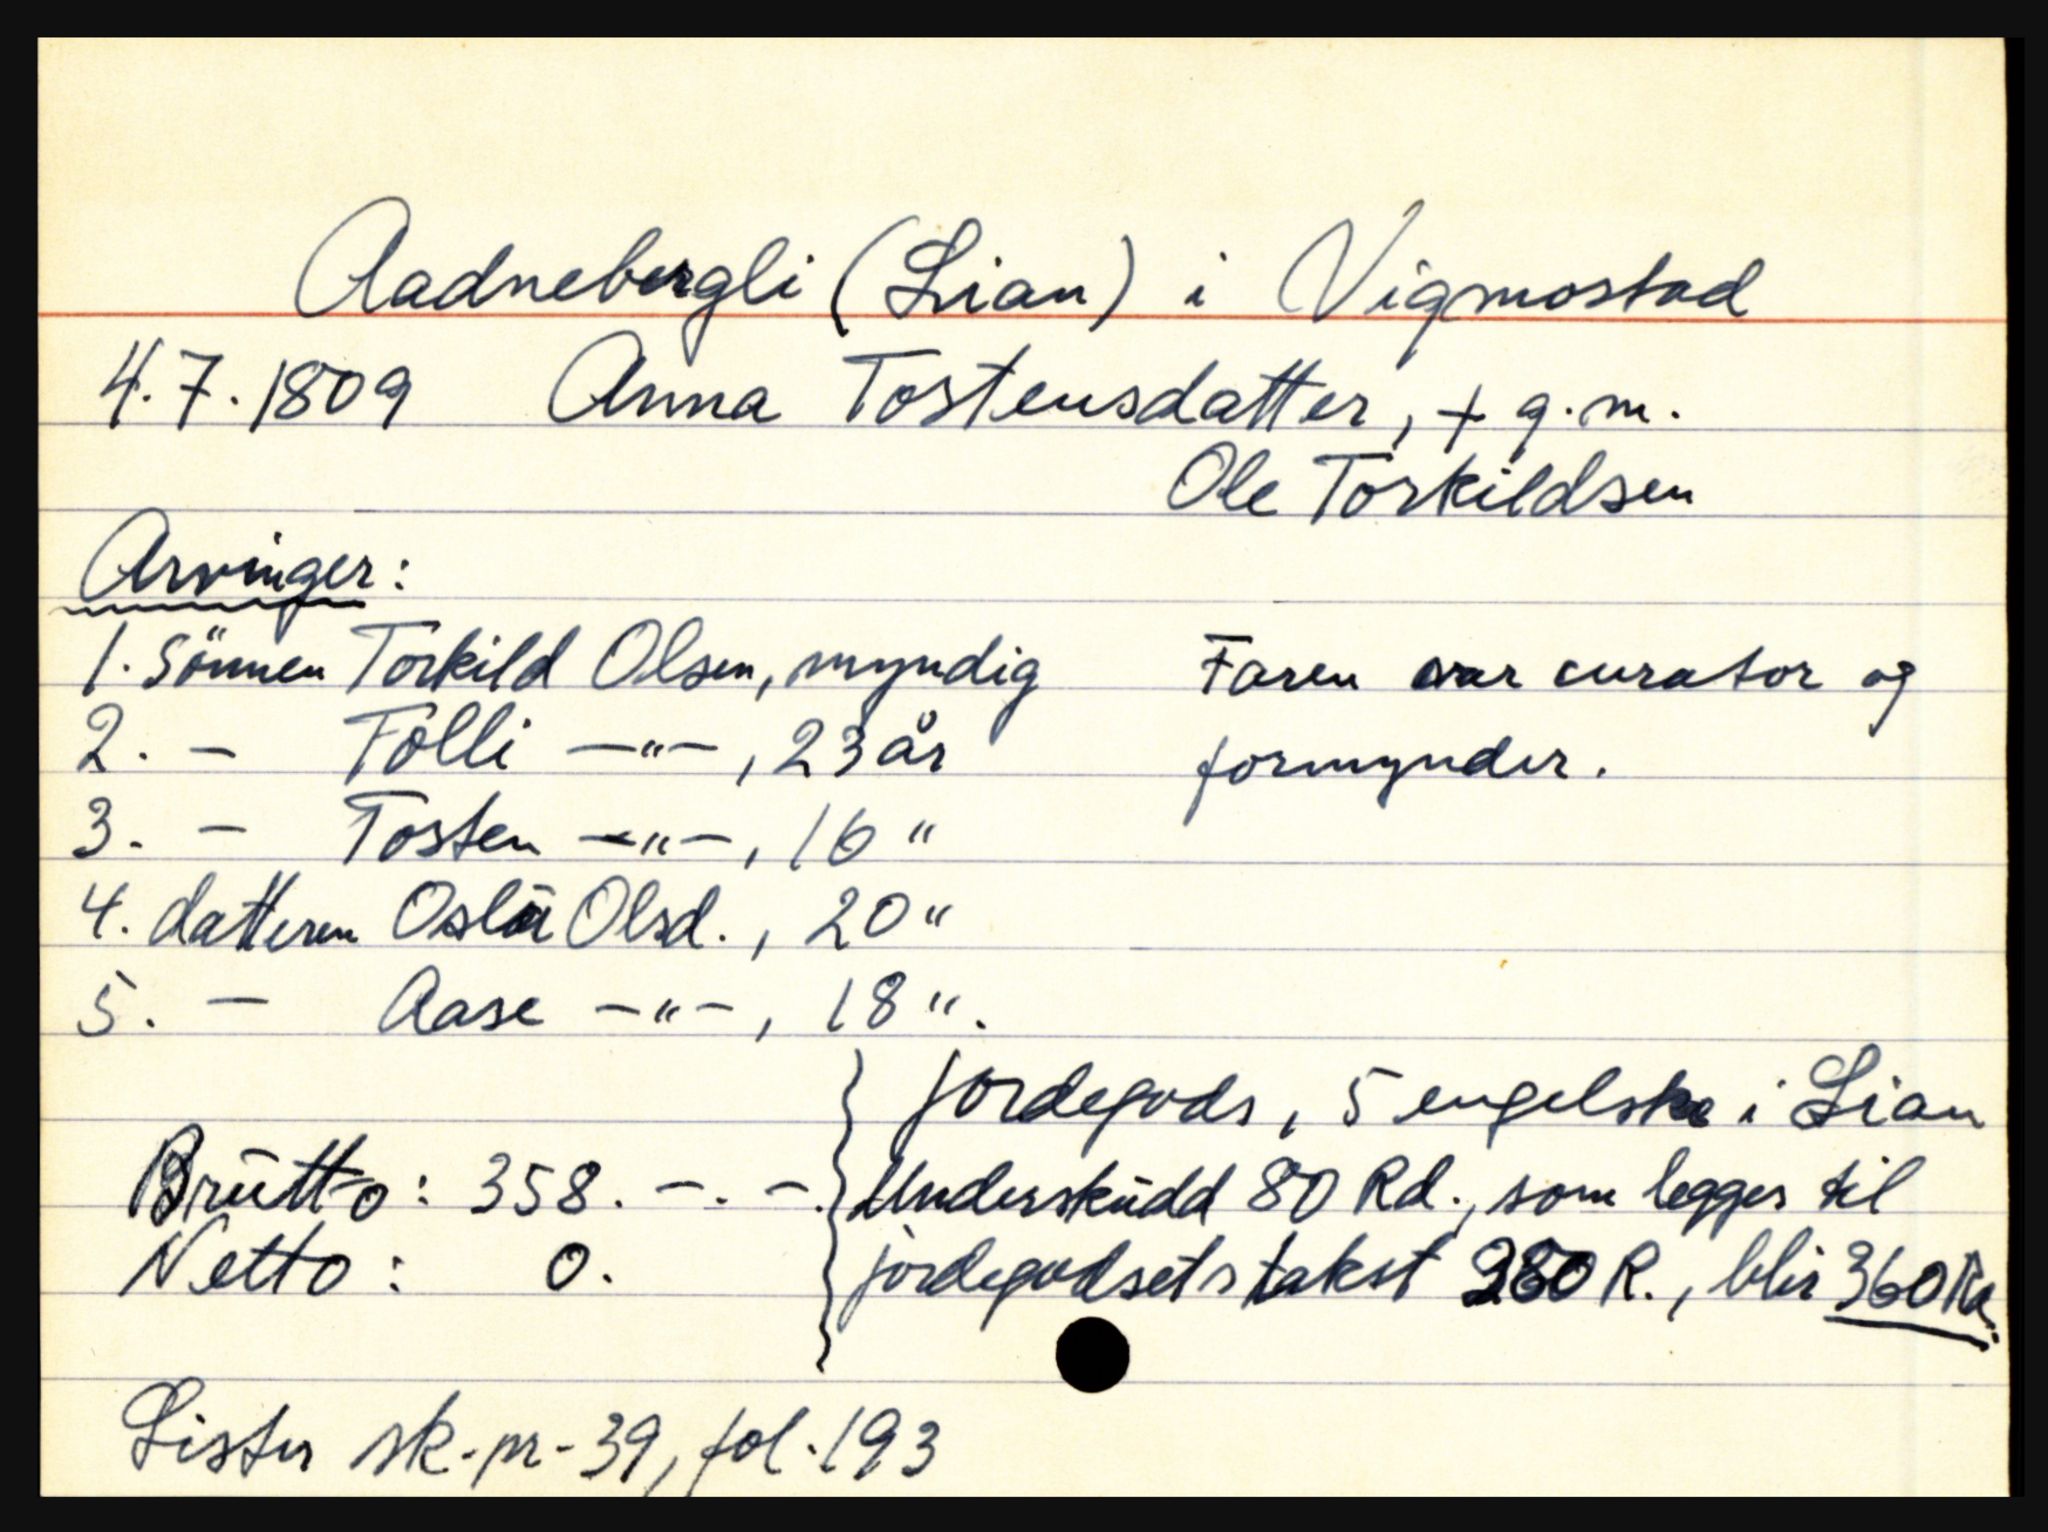 Aadnebergli (Lian) i Vigmostad
4.7.1809 Anna Tostensdatter, + g.m.
Ole Torkildsen
Arvinger:
1. Sönnen Torkild Olsen, myndig
2. - Tolli -"-, 23 år
3. - Tosten -"-, 16 "
4. datteren Olsd., 20 "
5. - Aase -"-, 18 ".
Faren var curator og
formynder.
Brutto: 358. -. -.
Netto: 0.
jordegods, 5 engelske i Lian
Underskudd 80 Rd., som legges til
jordegodsets takst 280 R., blir 360 Rd.
Lister sk.pr-39, fol.193